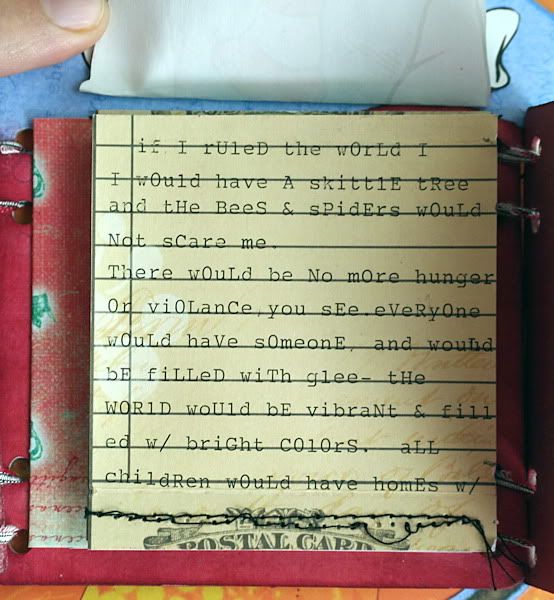 if I rUleD the wOrLd I
I wOuld have A skittlE tRee
and tHe BeeS & sPidErs wOuLd
Not sCare me.
There wOuLd be No mOre hunger
Or viOLanCe,you sEe.eVeRyOne
wOuLd haVe sOmeonE, and wouLd
bE fiLLeD wiTh glee- tHe
WORlD woUld bE vibraNt & fill
ed w/ briGht COlOrS. aLL
childRen wOuLd have homEs w/
POSTAL CARD